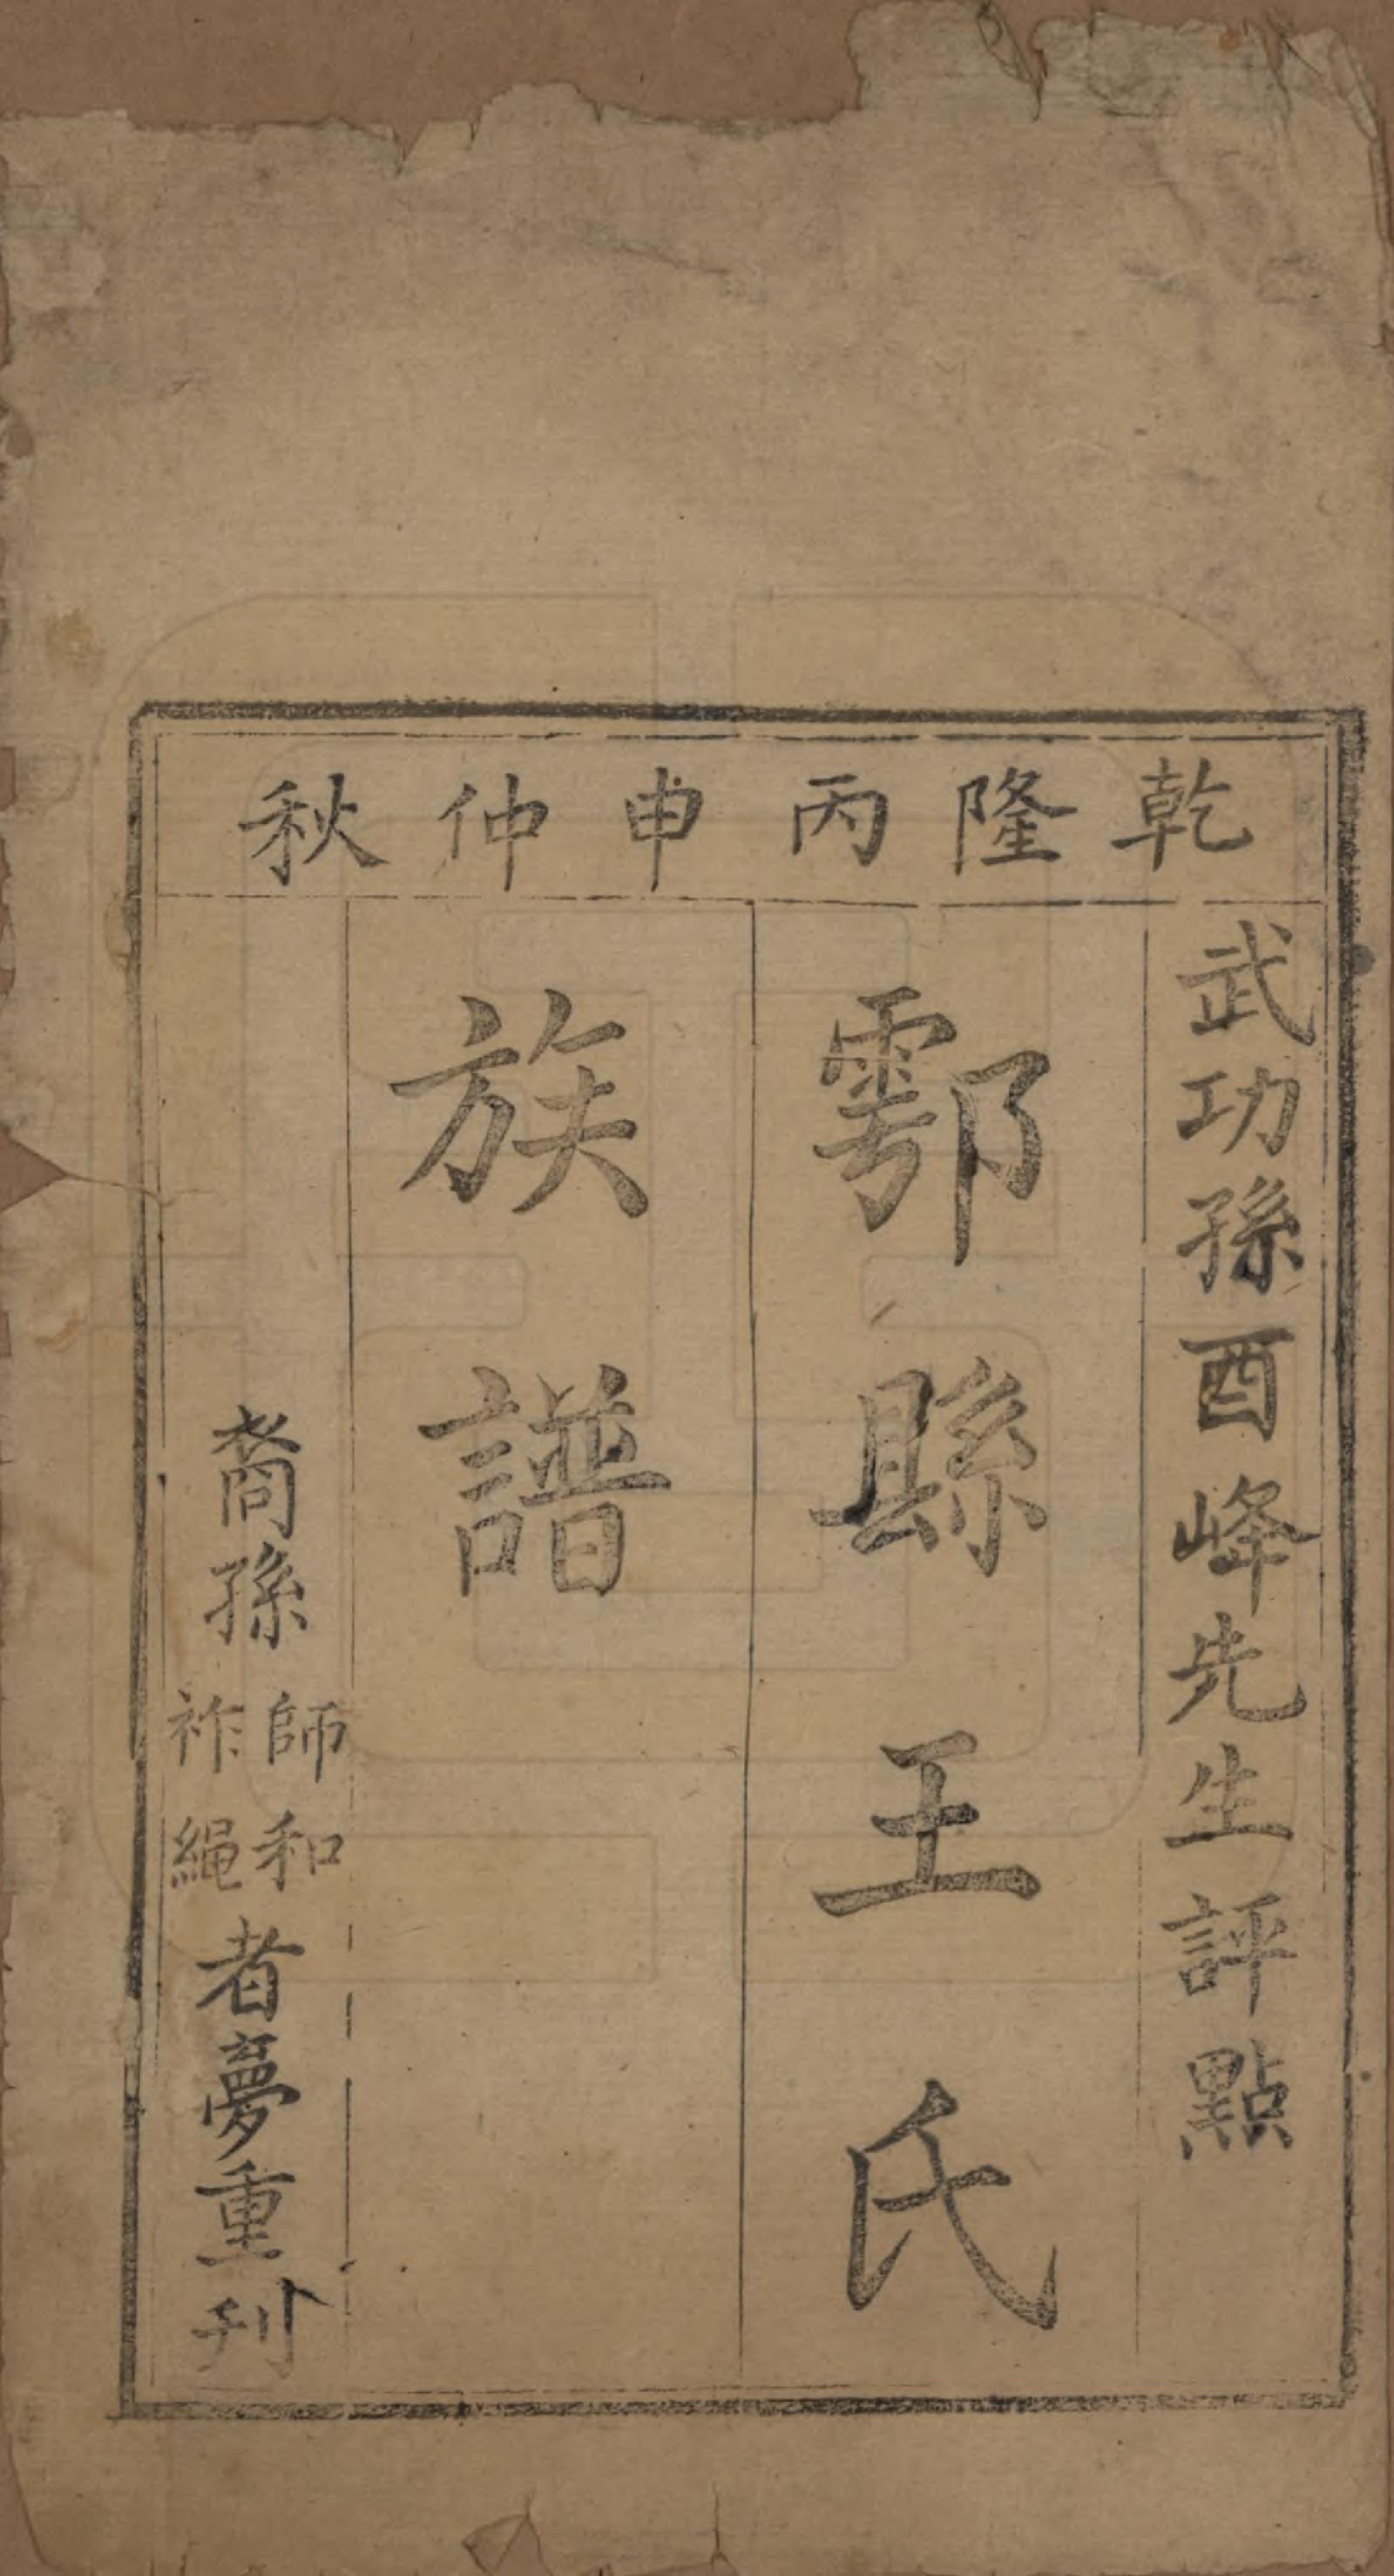 乾隆丙申仲秋
武功孫酉峰先生評點
鄠縣王氏
族譜
裔孫師和祚繩者夢重刋